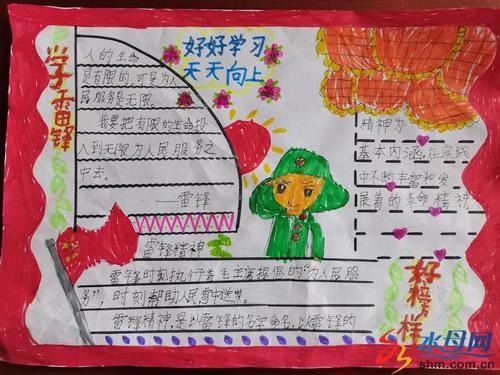 好好学习
天天向上
学雷锋
人的生命
是有限的,可是为人
民服务是无限。
我要把有限的生命投
入到无限为人民服务之
中去。
——雷锋
精神为
基本内涵,在实践
中不断丰富和发
展着的革命精神
雷锋精神
雷锋时刻执行着毛主席提倡的“为人民服
务”,时刻帮助人民,雪中送炭。
雷锋精神,是以雷锋的名字命名,以雷锋的
好榜样
水母网
shm.com.cn